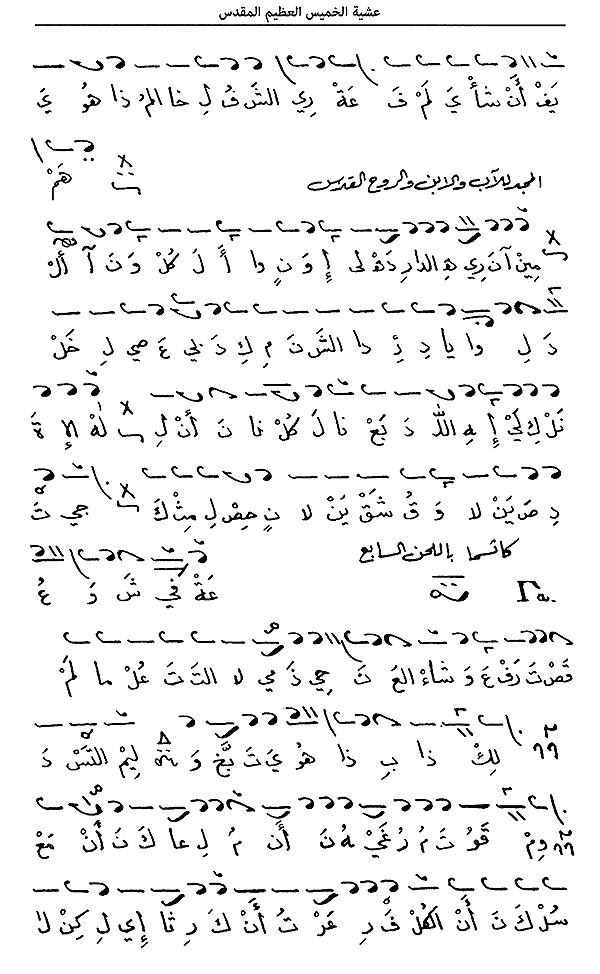 عشية الخميس العظيم المقدس
يَفْ أَنْ شأْ يَ لَمْ فَ عَةْ رِي الشَ فُ لِ خا المُ ذا هُو يَ
المجد للآب والابن والروح القدس هَمْ
مِينْ آنَ رِي هِ الدارِ دَهْ لى إِ وَ نِ وا أَ لَ كُلْ وَ نَ آ أَلْ
دَ لِ وا يا دِ ذِ دا الشَ نَ مِ كِ دَ لي عَ صي لِ خَلْ
نَلْ كِ لَيْ إِ هِ اللَّ دَ بَعْ نا لَ كُلْ نا نَ أَنْ لِ لَهْ الإِ ةَ
دِ صَ يَنْ لا وَ قُ شَقْ يَنْ لا نِ حِصْ لِ مِثْ كَ جي تَ
كاتسما باللحن السابع
عَةْ في شَ وَ عُ
قَصْ تَ رَفْ عَ وَ شاءْ العَ تَ حِي ذَ مي لا التَ تَ عُلْ ما لَمْ
لِكْ ذا بِ ذا هُو يَ تَ بَّخْ وَ لِيمْ التَسْ دَ
وِمْ قَوُ تَ مُ رُ غَيْ هُ نَ أَن مُ لِ عا كَ نَ أَنْ مَعْ
سُلْ كَ نَ أَنْ الكُلْ رِ عَرْ تُ أَنْ كَ رِ ثا إي لِ كِنْ لا